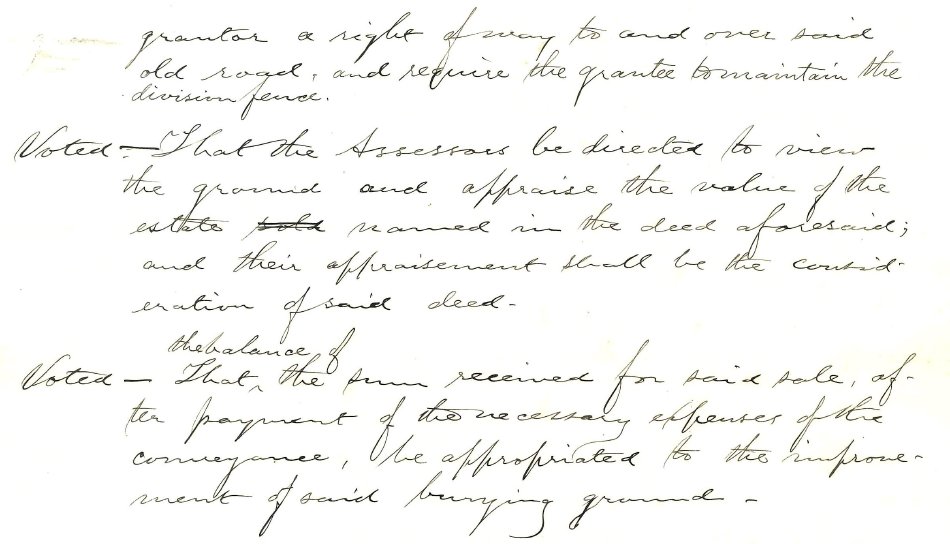 grantor a right of way to and over said
old road, and require the grantee to maintain the
division fence.
Voted - That the Assessors be directed to view
the ground and appraise the value of the
estate sold named in the deed aforesaid;
and their appraisement shall be the consid-
eration of said deed-
the balance of
Voted - That ^ the sum received for said sale, af-
ter payment of the necessary expenses of the
conveyance, be appropriated to the improve-
ment of said burying ground -